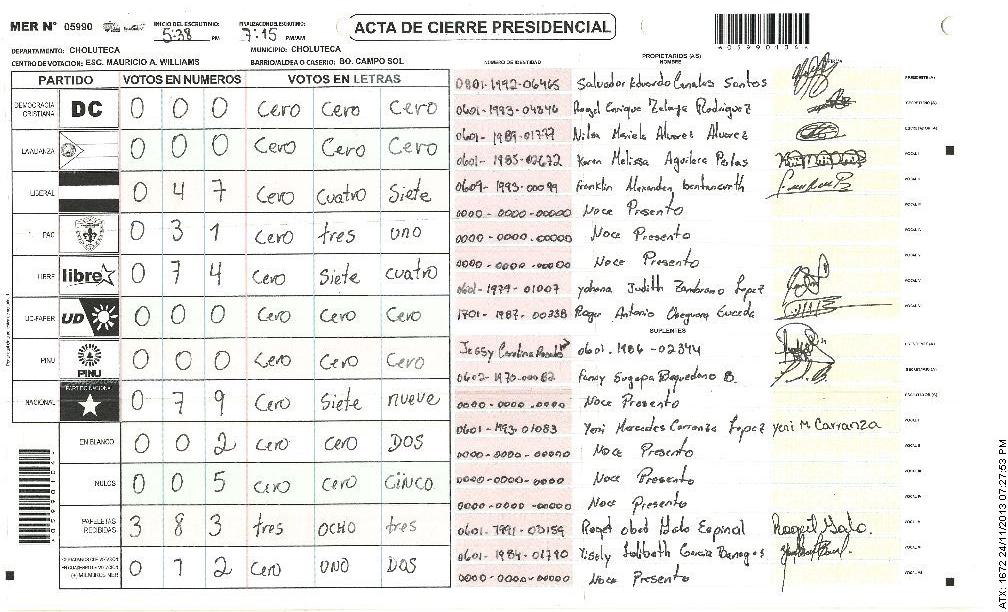 MER N° 05990 INICIO DEL ESCRUTINIO: 5:38 PM FINALIZACION DEL ESCRUTINIO: 7:15 PM/AM
ACTA DE CIERRE PRESIDENCIAL
A05990136A
DEPARTAMENTO: CHOLUTECA MUNICIPIO: CHOLUTECA
CENTRO DE VOTACION: ESC. MAURICIO A. WILLIAMS BARRIO/ALDEA O CASERIO: BO. CAMPO SOL
PARTIDO VOTOS EN NUMEROS VOTOS EN LETRAS
DEMOCRACIA CRISTIANA DC 0 0 0 Cero Cero Cero
LA ALIANZA 0 0 0 Cero Cero Cero
LIBERAL 0 4 7 Cero Cuatro Siete
PAC 0 3 1 Cero tres uno
LIBRE libre 0 7 4 Cero Siete cuatro
UD-FAPER UD 0 0 0 Cero Cero Cero
PINU PINU 0 0 0 Cero Cero Cero
NACIONAL PARTIDO NACIONAL 0 7 9 Cero Siete nueve
EN BLANCO 0 0 2 cero cero DOS
NULOS 0 0 5 cero cero CINCO
PAPELETAS RECIBIDAS 3 8 3 tres OCHO tres
(+) MIEMBROS MER 0 1 2 Cero UNO DOS
NUMERO DE IDENTIDAD PROPIETARIOS (AS) NOMBRE FIRMA
0801-1992-06465 Salvador Eduardo Canales Santos PRESIDENTE(A)
0601-1993-04846 Rogel Enrique Zelaya Rodriguez SECRETARIO (A)
0601-1989-01777 Nilsa Mariela Alvarez Alvarez ESCRUTADOR (A)
0601-1985-02672 Karen Melissa Aguilera VOCAL I
0609-1993-00099 Franklin Alexander
0000-0000-00000 Noce Presento
0000-0000-00000 Noce Presento
0000-0000-00000 Noce Presento
0601-1979-01007 Yohana Judith Zambrano Lopez
1701-1987-00338 Roger Antonio Oseguera Euceda
SUPLENTES
Jessy Carolina 0601-1986-02344
0602-1970-00082 Fanny Suyapa Baquedano B.
0000-0000-0000 Noce Presento
0601-1993-01083 Yeni Mercedes Carranza Lopez Yeni M Carranza
0000-0000-00000 Noce Presento
0000-0000-00000 Noce Presento
0000-0000-00000 Noce Presento
0601-1991-03159 Rogel obed Galo Espinal Rogel Galo.
0601-1984-01790 Yisely Lolibeth Garcia Banegas
0000-0000-00000 Noce Presento
ATX: 1672 24/11/2013 07:27:53 PM